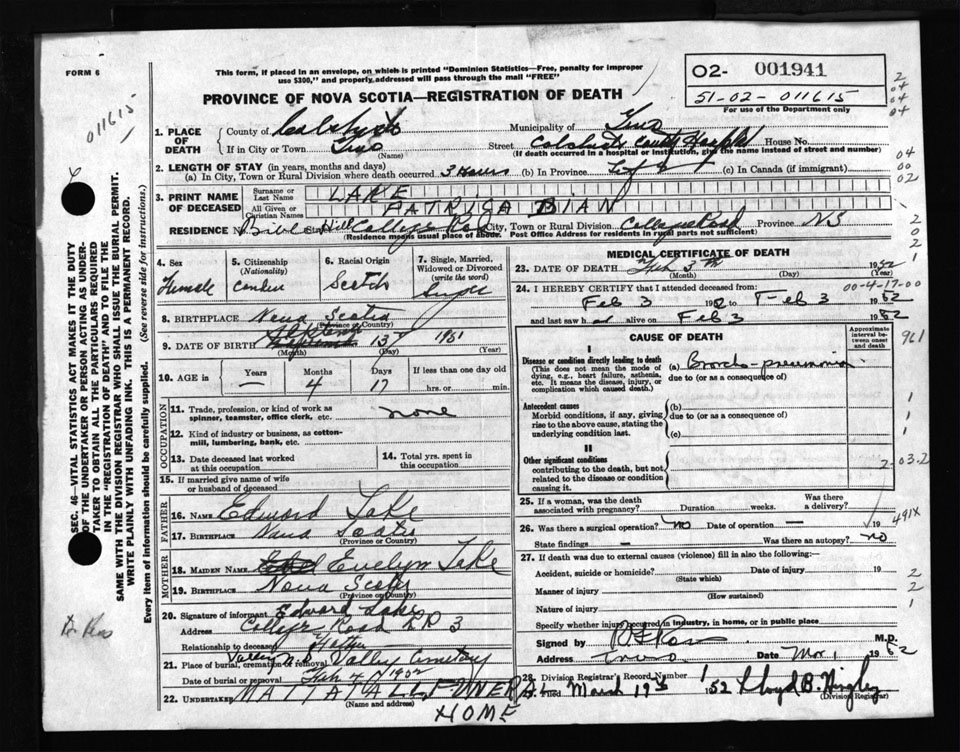 FORM 6
This form, if placed in an envelope, on which is printed "Dominion Statistics—Free, penalty for improper
use $300," and properly addressed will pass through the mail "FREE"
O2- 001941
51-02-011615
For use of the Department only
PROVINCE OF NOVA SCOTIA—REGISTRATION OF DEATH
011615
1. PLACE OF DEATH
County of Colchester Municipality of Truro
If in City or Town Truro (Name) Street Colchester County Hospital House No.
(If death occurred in a hospital or institution, give the name instead of street and number)
2. LENGTH OF STAY (in years, months and days)
(a) In City, Town or Rural Division where death occurred 3 Hours (b) In Province (c) In Canada (if immigrant)
3. PRINT NAME OF DECEASED
Surname or Last Name LAKE
All Given or Christian Names PATRICA DIAN
RESIDENCE No. Bible Hill College Road City, Town or Rural Division College Road Province NS
(Residence means usual place of abode. Post Office Address for residents in rural parts not sufficient)
4. Sex Female
5. Citizenship (Nationality)
6. Racial Origin Scotch
7. Single, Married, Widowed or Divorced (write the word) Single
8. BIRTHPLACE Nova Scotia
(Province or Country)
9. DATE OF BIRTH 1951
(Month) (Day) (Year)
10. AGE in Years — Months 4 Days 17 If less than one day old hrs. or min.
OCCUPATION
11. Trade, profession, or kind of work as spinner, teamster, office clerk, etc. none
12. Kind of industry or business, as cotton-mill, lumbering, bank, etc.
13. Date deceased last worked at this occupation
14. Total yrs. spent in this occupation
15. If married give name of wife or husband of deceased
FATHER
16. NAME Edward Lake
17. BIRTHPLACE Nova Scotia
(Province or Country)
MOTHER
18. MAIDEN NAME Evelyn Lake
19. BIRTHPLACE Nova Scotia
(Province or Country)
20. Signature of informant Edward Lake
Address College Road RR 3
Relationship to deceased Father
21. Place of burial, cremation or removal Valley N.S. Valley Cemetery
Date of burial or removal Feb 4 1952
22. UNDERTAKER MATTATALL FUNERAL
(Name and address)
HOME
MEDICAL CERTIFICATE OF DEATH
23. DATE OF DEATH Feb 3rd 1952
(Month) (Day) (Year)
24. I HEREBY CERTIFY that I attended deceased from:
00-4-17-00
Feb 3 1952 to Feb 3 1952
and last saw h alive on Feb 3 1952
CAUSE OF DEATH
Approximate interval between onset and death
961
I
Disease or condition directly leading to death
(This does not mean the mode of dying, e.g., heart failure, asthenia, etc. It means the disease, injury, or complication which caused death.)
(a) Broncho-pneumonia
due to (or as a consequence of)
Antecedent causes
Morbid conditions, if any, giving rise to the above cause, stating the underlying condition last.
(b)
due to (or as a consequence of)
(c)
II
Other significant conditions
contributing to the death, but not related to the disease or condition causing it.
25. If a woman, was the death associated with pregnancy? Duration weeks. Was there a delivery?
26. Was there a surgical operation? no Date of operation — 19
State findings — Was there an autopsy? no
491X
27. If death was due to external causes (violence) fill in also the following:—
Accident, suicide or homicide? Date of injury 19
(State which)
Manner of injury
(How sustained)
Nature of injury
Specify whether injury occurred in industry, in home, or in public place
Signed by M.D.
Address Truro Date Mar 1 1952
28. Division Registrar's Record Number 1
March 19th 1952 Lloyd B. Hingley
(Division Registrar)
SEC. 46—VITAL STATISTICS ACT MAKES IT THE DUTY
OF THE UNDERTAKER OR PERSON ACTING AS UNDERTAKER
TO OBTAIN ALL THE PARTICULARS REQUIRED
IN THE "REGISTRATION OF DEATH" AND TO FILE THE
SAME WITH THE DIVISION REGISTRAR WHO SHALL ISSUE THE BURIAL PERMIT.
WRITE PLAINLY WITH UNFADING INK. THIS IS A PERMANENT RECORD.
Every item of information should be carefully supplied. (See reverse side for instructions.)
Dr Ross